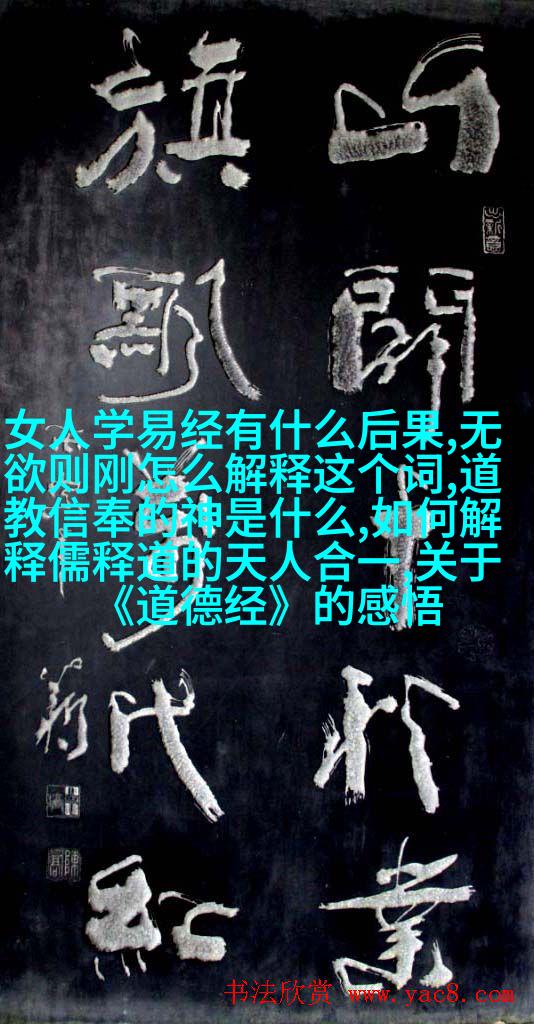 開千秋業
旗萬代紅
女人学易经有什么后果,无
欲则刚怎么解释这个词,道
教信奉的神是什么,如何解
释儒释道的天人合一,关于
《道德经》的感悟
书法欣赏 www.yac8.com